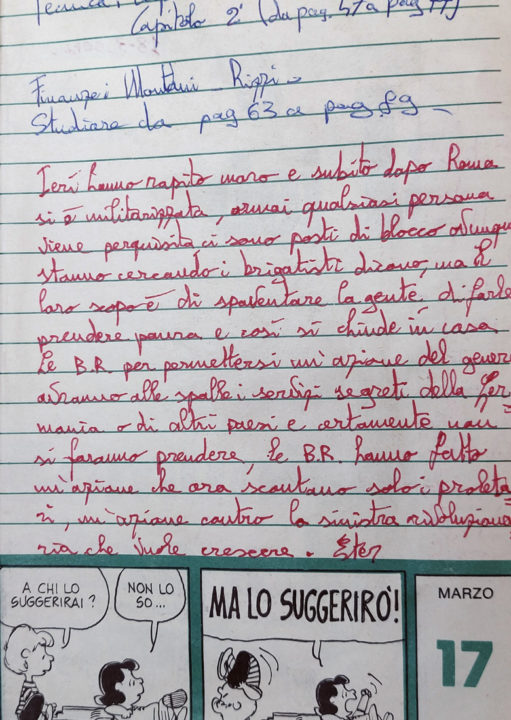 Capitolo 2° (da pag. 57 a pag 77)
Finanze: Mondini - Rizzi -
Studiare da pag 63 a pag. 89 -
Ieri hanno rapito moro e subito dopo Roma
si è militarizzata, ormai qualsiasi persona
viene perquisita ci sono posti di blocco ovunque
stanno cercando i brigatisti dicono, ma il
loro scopo è di spaventare la gente di farle
prendere paura e così si chiude in casa
Le B.R. per permettersi un'azione del genere
avranno alle spalle i servizi segreti della Ger
mania o di altri paesi e certamente non
si faranno prendere, le B.R. hanno fatto
un'azione che ora scontano solo i proleta
ri, un'azione contro la sinistra rivoluziona
ria che vuole crescere. Ester
A CHI LO SUGGERIRAI?
NON LO SO...
MA LO SUGGERIRO'!
MARZO
17